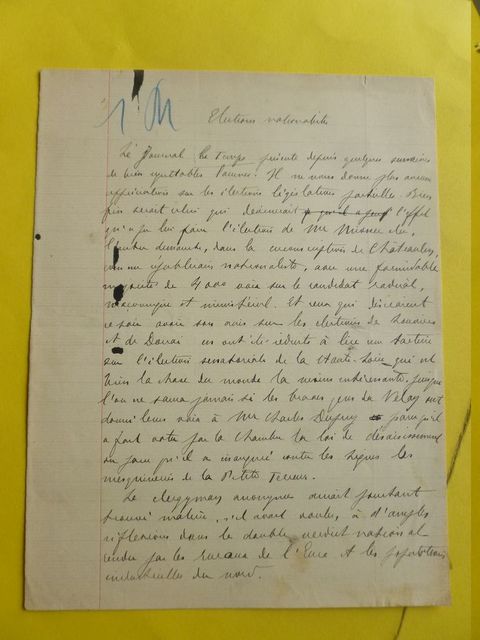 Elections nationalistes
Le Journal le Temps présente depuis quelques semaines
de bien équitables lacunes. Il ne nous donne plus aucune
appréciation sur les élections législatives partielles. Bien
fin serait celui qui devinerait l'effet
qu'a pu lui faire l'élection de Mr
dimanche, dans la circonscription de
comme républicain nationaliste, avec une formidable
majorité de 4000 voix sur le candidat radical,
maçonnique et ministériel. Et ceux qui désiraient
avoir son avis sur les élections de Louviers
et de Douai en ont été réduits à lire un
sur l'élection sénatoriale de la Haute-Loire qui est
bien la chose du monde la moins intéressante, puisque
l'on ne saura jamais si les braves gens du Velay ont
donné leurs voix à Mr Charles Dupuy parce qu'il
a fait voter par la Chambre la loi de dessaisissement
ou parce qu'il a inauguré contre les ligues les
mesquineries de la Petite Terreur.
Le clergyman anonyme aurait pourtant
trouvé matière, s'il avait voulu, à d'amples
réflexions dans le double verdict national
rendu par les ruraux de l'Eure et les populations
industrielles du nord.